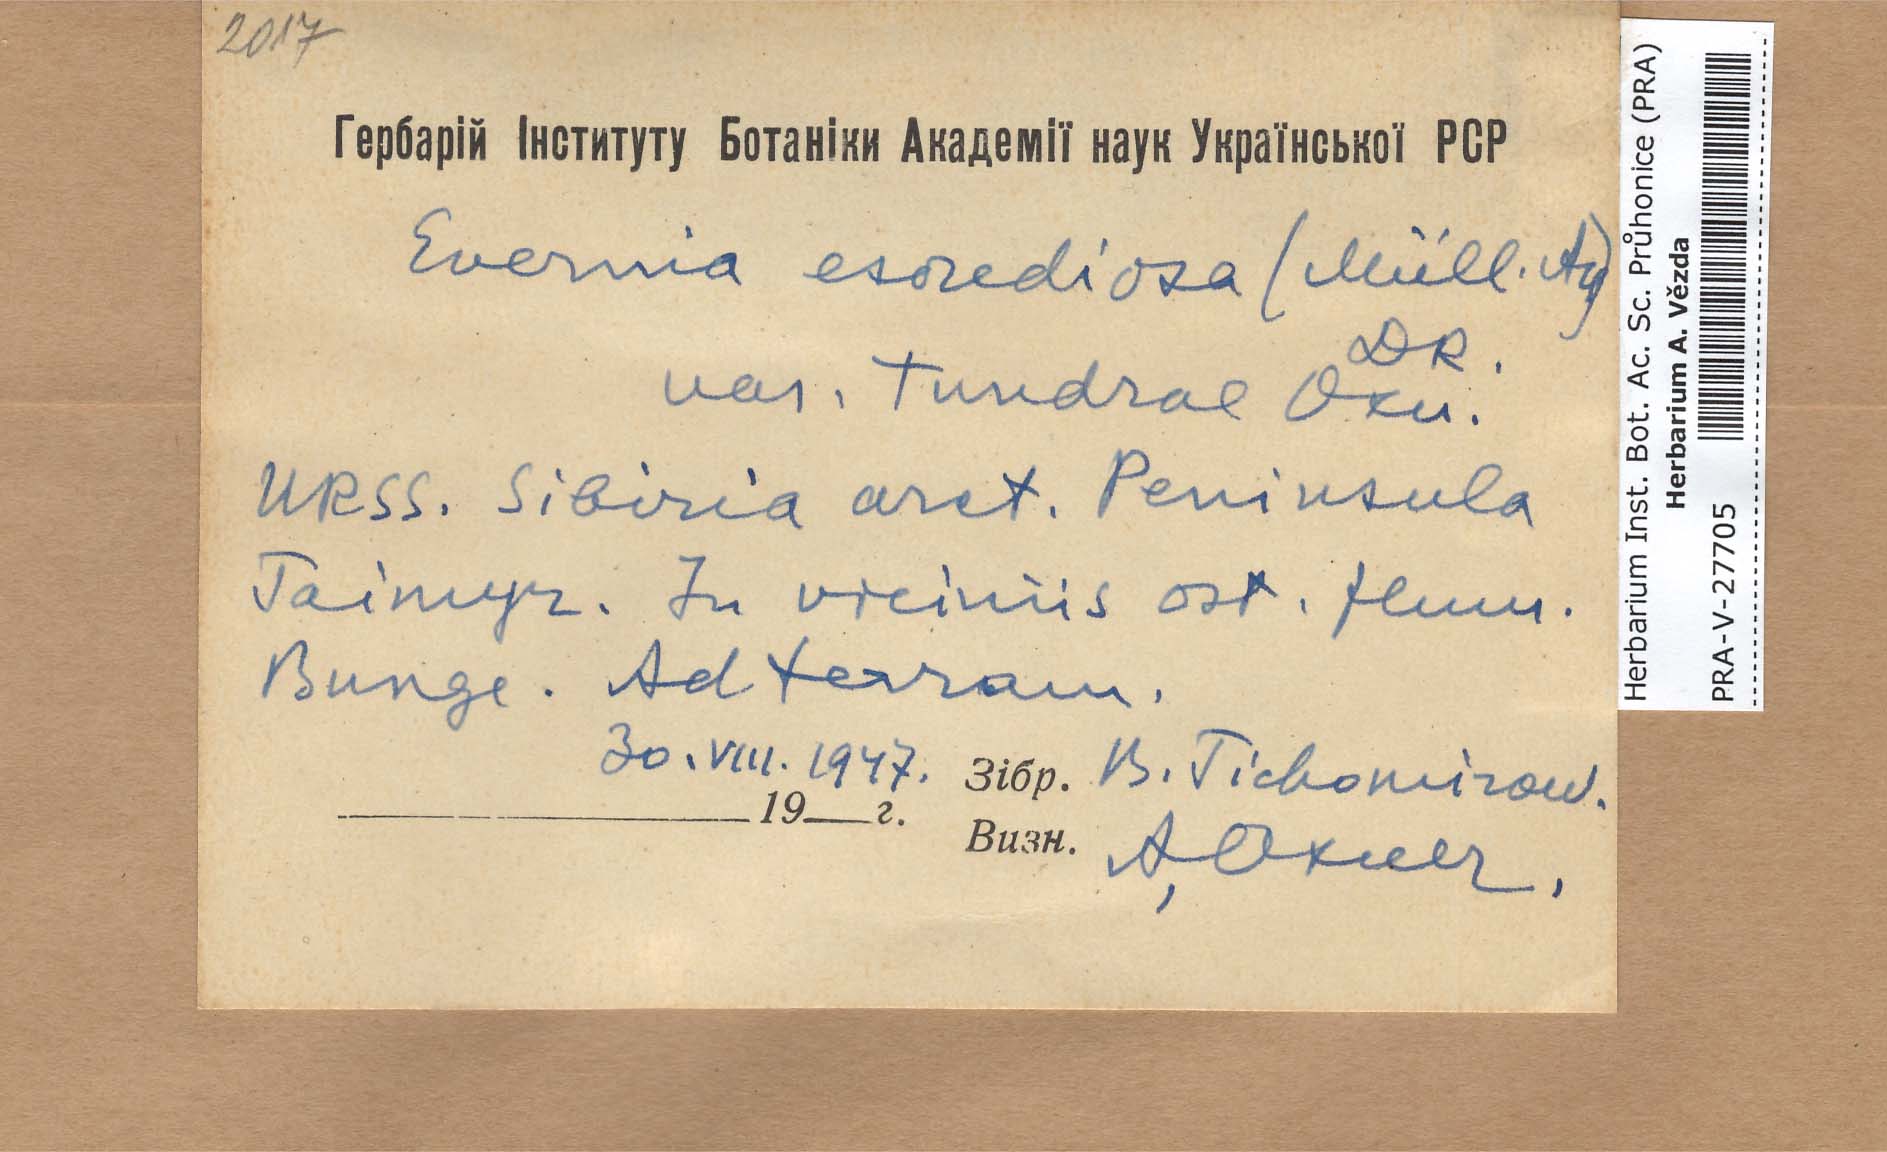 2017
Гербарій Інституту Ботаніки Академії наук Української РСР
Evernia esorediosa (Müll. Arg)
DR.
var. tundrae Oxn.
URSS. Sibiria arct. Peninsula
Taimyr. In viciniis ost. flum.
Bunge. Ad terram.
30.VIII.1947.
19 г.
Зібр. B. Tichomirow.
Визн. A, Oxner.
Herbarium Inst. Bot. Ac. Sc. Průhonice (PRA)
Herbarium A. Vězda
PRA-V-27705